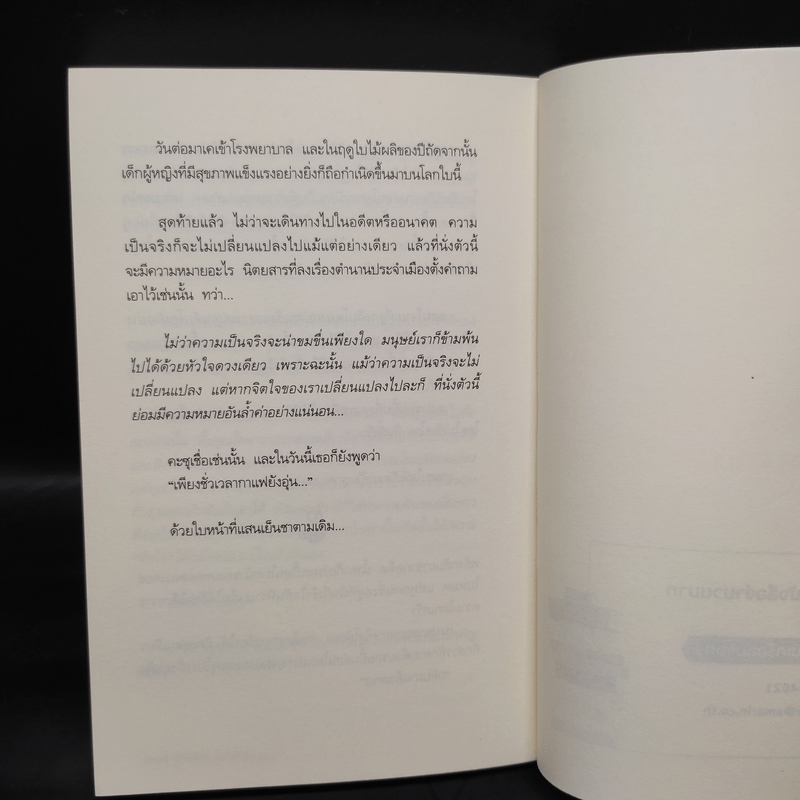 วันต่อมาเคเข้าโรงพยาบาล และในฤดูใบไม้ผลิของปีถัดจากนั้น
เด็กผู้หญิงที่มีสุขภาพแข็งแรงอย่างยิ่งก็ถือกำเนิดขึ้นมาบนโลกใบนี้
สุดท้ายแล้ว ไม่ว่าจะเดินทางไปในอดีตหรืออนาคต ความ
เป็นจริงก็จะไม่เปลี่ยนแปลงไปแม้แต่อย่างเดียว แล้วที่นั่งตัวนี้
จะมีความหมายอะไร นิตยสารที่ลงเรื่องตำนานประจำเมืองตั้งคำถาม
เอาไว้เช่นนั้น ทว่า...
ไม่ว่าความเป็นจริงจะน่าขมขื่นเพียงใด มนุษย์เราก็ข้ามพ้น
ไปได้ด้วยหัวใจดวงเดียว เพราะฉะนั้น แม้ว่าความเป็นจริงจะไม่
เปลี่ยนแปลง แต่หากจิตใจของเราเปลี่ยนแปลงไปละก็ ที่นั่งตัวนี้
ย่อมมีความหมายอันล้ำค่าอย่างแน่นอน...
คะซุเชื่อเช่นนั้น และในวันนี้เธอก็ยังพูดว่า
“เพียงชั่วเวลากาแฟยังอุ่น...”
ด้วยใบหน้าที่แสนเย็นชาตามเดิม...